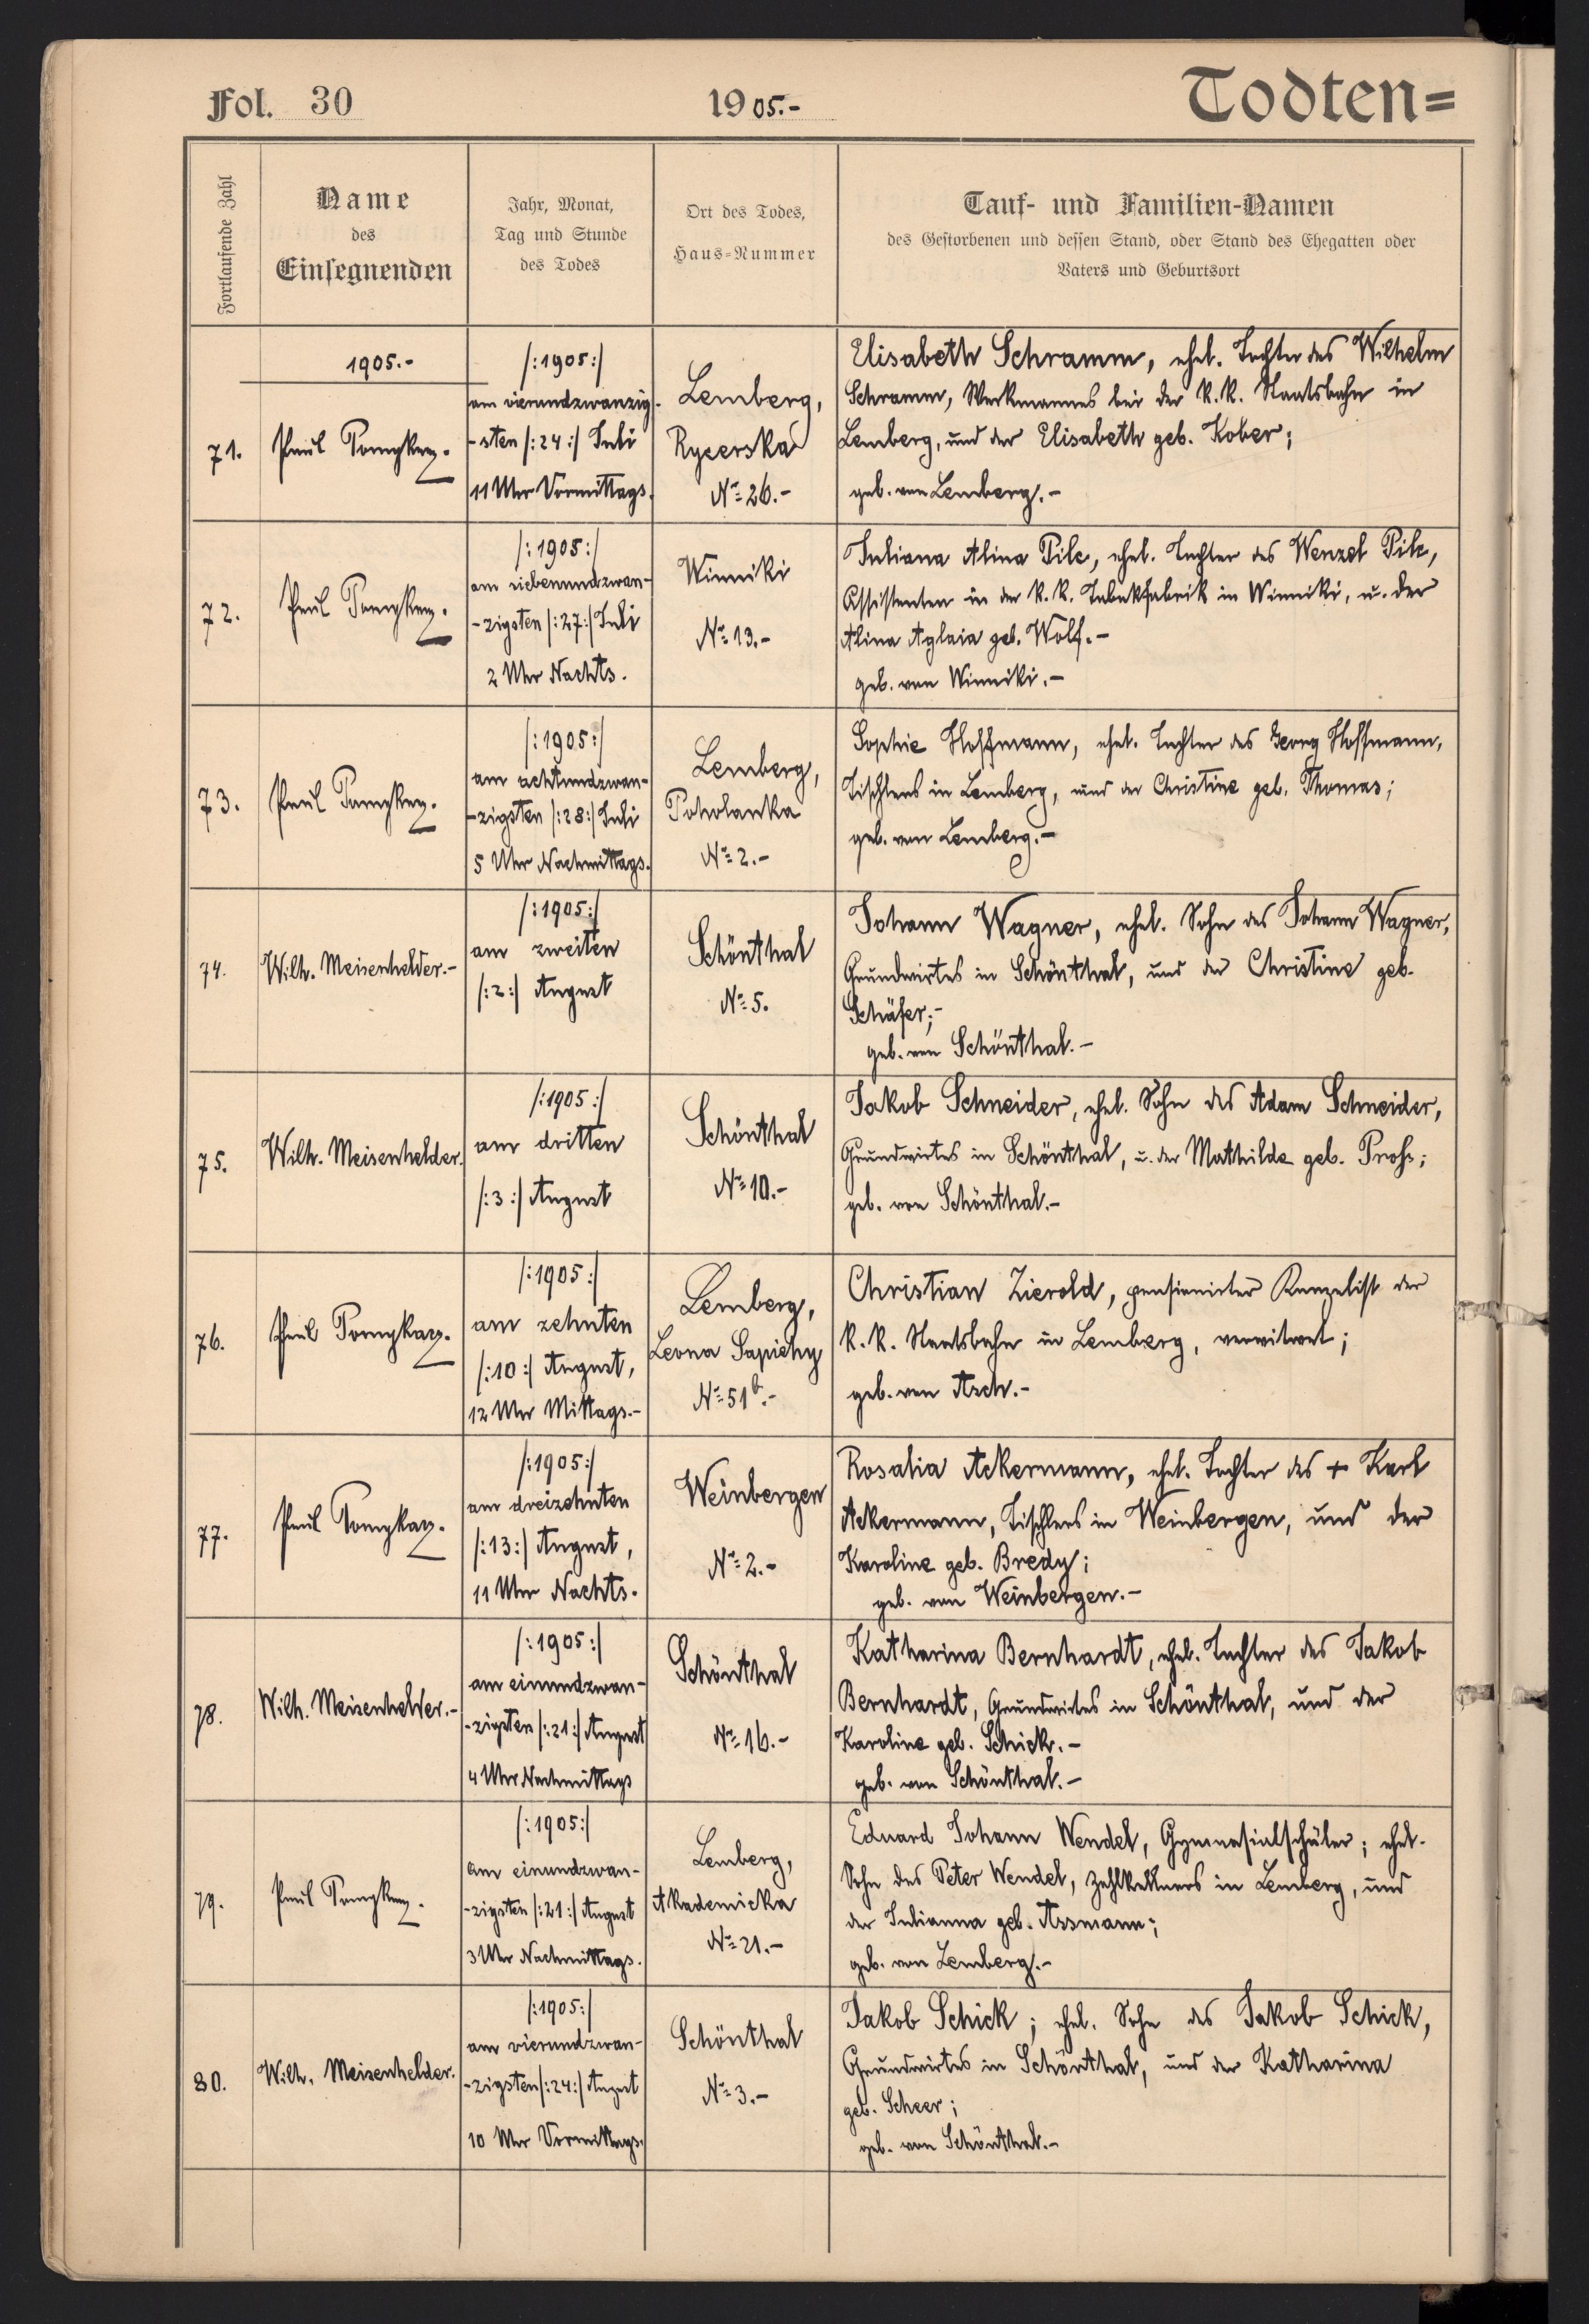 Fol. 30
1905.-
Todten=
Fortlaufende Zahl
Name
des
Einsegnenden
Jahr, Monat,
Tag und Stunde
des Todes
Ort des Todes,
Haus-Nummer
Tauf- und Familien-Namen
des Gestorbenen und dessen Stand, oder Stand des Ehegatten oder
Vaters und Geburtsort
1905.-
71.
Paul Pomykacz.
/:1905:/
am vierundzwanzig-
-sten /:24:/ Juli
11 Uhr Vormittags.
Lemberg,
Rycerska
No 26.-
Elisabeth Schramm, ehel. Tochter des Wilhelm
Schramm, Werkmannes bei der k.k. Staatsbahn in
Lemberg, und der Elisabeth geb. Kober;
geb. von Lemberg.-
72.
Paul Pomykacz.
/:1905:/
am siebenundzwan-
-zigsten /:27:/ Juli
2 Uhr Nachts.
Winniki
No 13.-
Juliana Alina Pilc, ehel. Tochter des Wenzel Pilc,
Assistenten in der k.k. Tabakfabrik in Winniki, u. der
Alina Aglaia geb. Wolf.-
geb. von Winniki.-
73.
Paul Pomykacz.
/:1905:/
am achtundzwan-
-zigsten /:28:/ Juli
5 Uhr Nachmittags.
Lemberg,
Poholanka
No 2.-
Sophie Hoffmann, ehel. Tochter des Georg Hoffmann,
Tischlers in Lemberg, und der Christine geb. Thomas;
geb. von Lemberg.-
74.
Wilh. Meisenhelder.-
/:1905:/
am zweiten
/:2:/ August
Schönthal
No 5.
Johann Wagner, ehel. Sohn des Johann Wagner,
Grundwirtes in Schönthal, und der Christine geb.
Schäfer;-
geb. von Schönthal.-
75.
Wilh. Meisenhelder.
/:1905:/
am dritten
/:3:/ August
Schönthal
No 10.-
Jakob Schneider, ehel. Sohn des Adam Schneider,
Grundwirtes in Schönthal, u. der Mathilde geb. Pross;
geb. von Schönthal.-
76.
Paul Pomykacz.
/:1905:/
am zehnten
/:10:/ August,
12 Uhr Mittags.-
Lemberg,
Leona Sapiehy
No 51b.-
Christian Zierold, pensionirter Kanzelist der
k.k. Staatsbahn in Lemberg, verwitwet;
geb. von Asch.-
77.
Paul Pomykacz.
/:1905:/
am dreizehnten
/:13:/ August,
11 Uhr Nachts.
Weinbergen
No 2.-
Rosalia Ackermann, ehel. Tochter des + Karl
Ackermann, Tischlers in Weinbergen, und der
Karoline geb. Bredy;
geb. von Weinbergen.-
78.
Wilh. Meisenhelder.-
/:1905:/
am einundzwan-
-zigsten /:21:/ August
4 Uhr Nachmittags
Schönthal
No 16.-
Katharina Bernhardt, ehel. Tochter des Jakob
Bernhardt, Grundwirtes in Schönthal, und der
Karoline geb. Schick.-
geb. von Schönthal.-
79.
Paul Pomykacz.
/:1905:/
am einundzwan-
-zigsten /:21:/ August
3 Uhr Nachmittags.
Lemberg,
Akademicka
No 21.-
Eduard Johann Wendel, Gymnasialschüler; ehel.
Sohn des Peter Wendel, Zahlkellners in Lemberg, und
der Julianna geb. Assmann;
geb. von Lemberg.-
80.
Wilh. Meisenhelder.
/:1905:/
am vierundzwan-
-zigsten /:24:/ August
10 Uhr Vormittags.
Schönthal
No 3.-
Jakob Schick; ehel. Sohn des Jakob Schick,
Grundwirtes in Schönthal, und der Katharina
geb. Scheer;
geb. von Schönthal.-